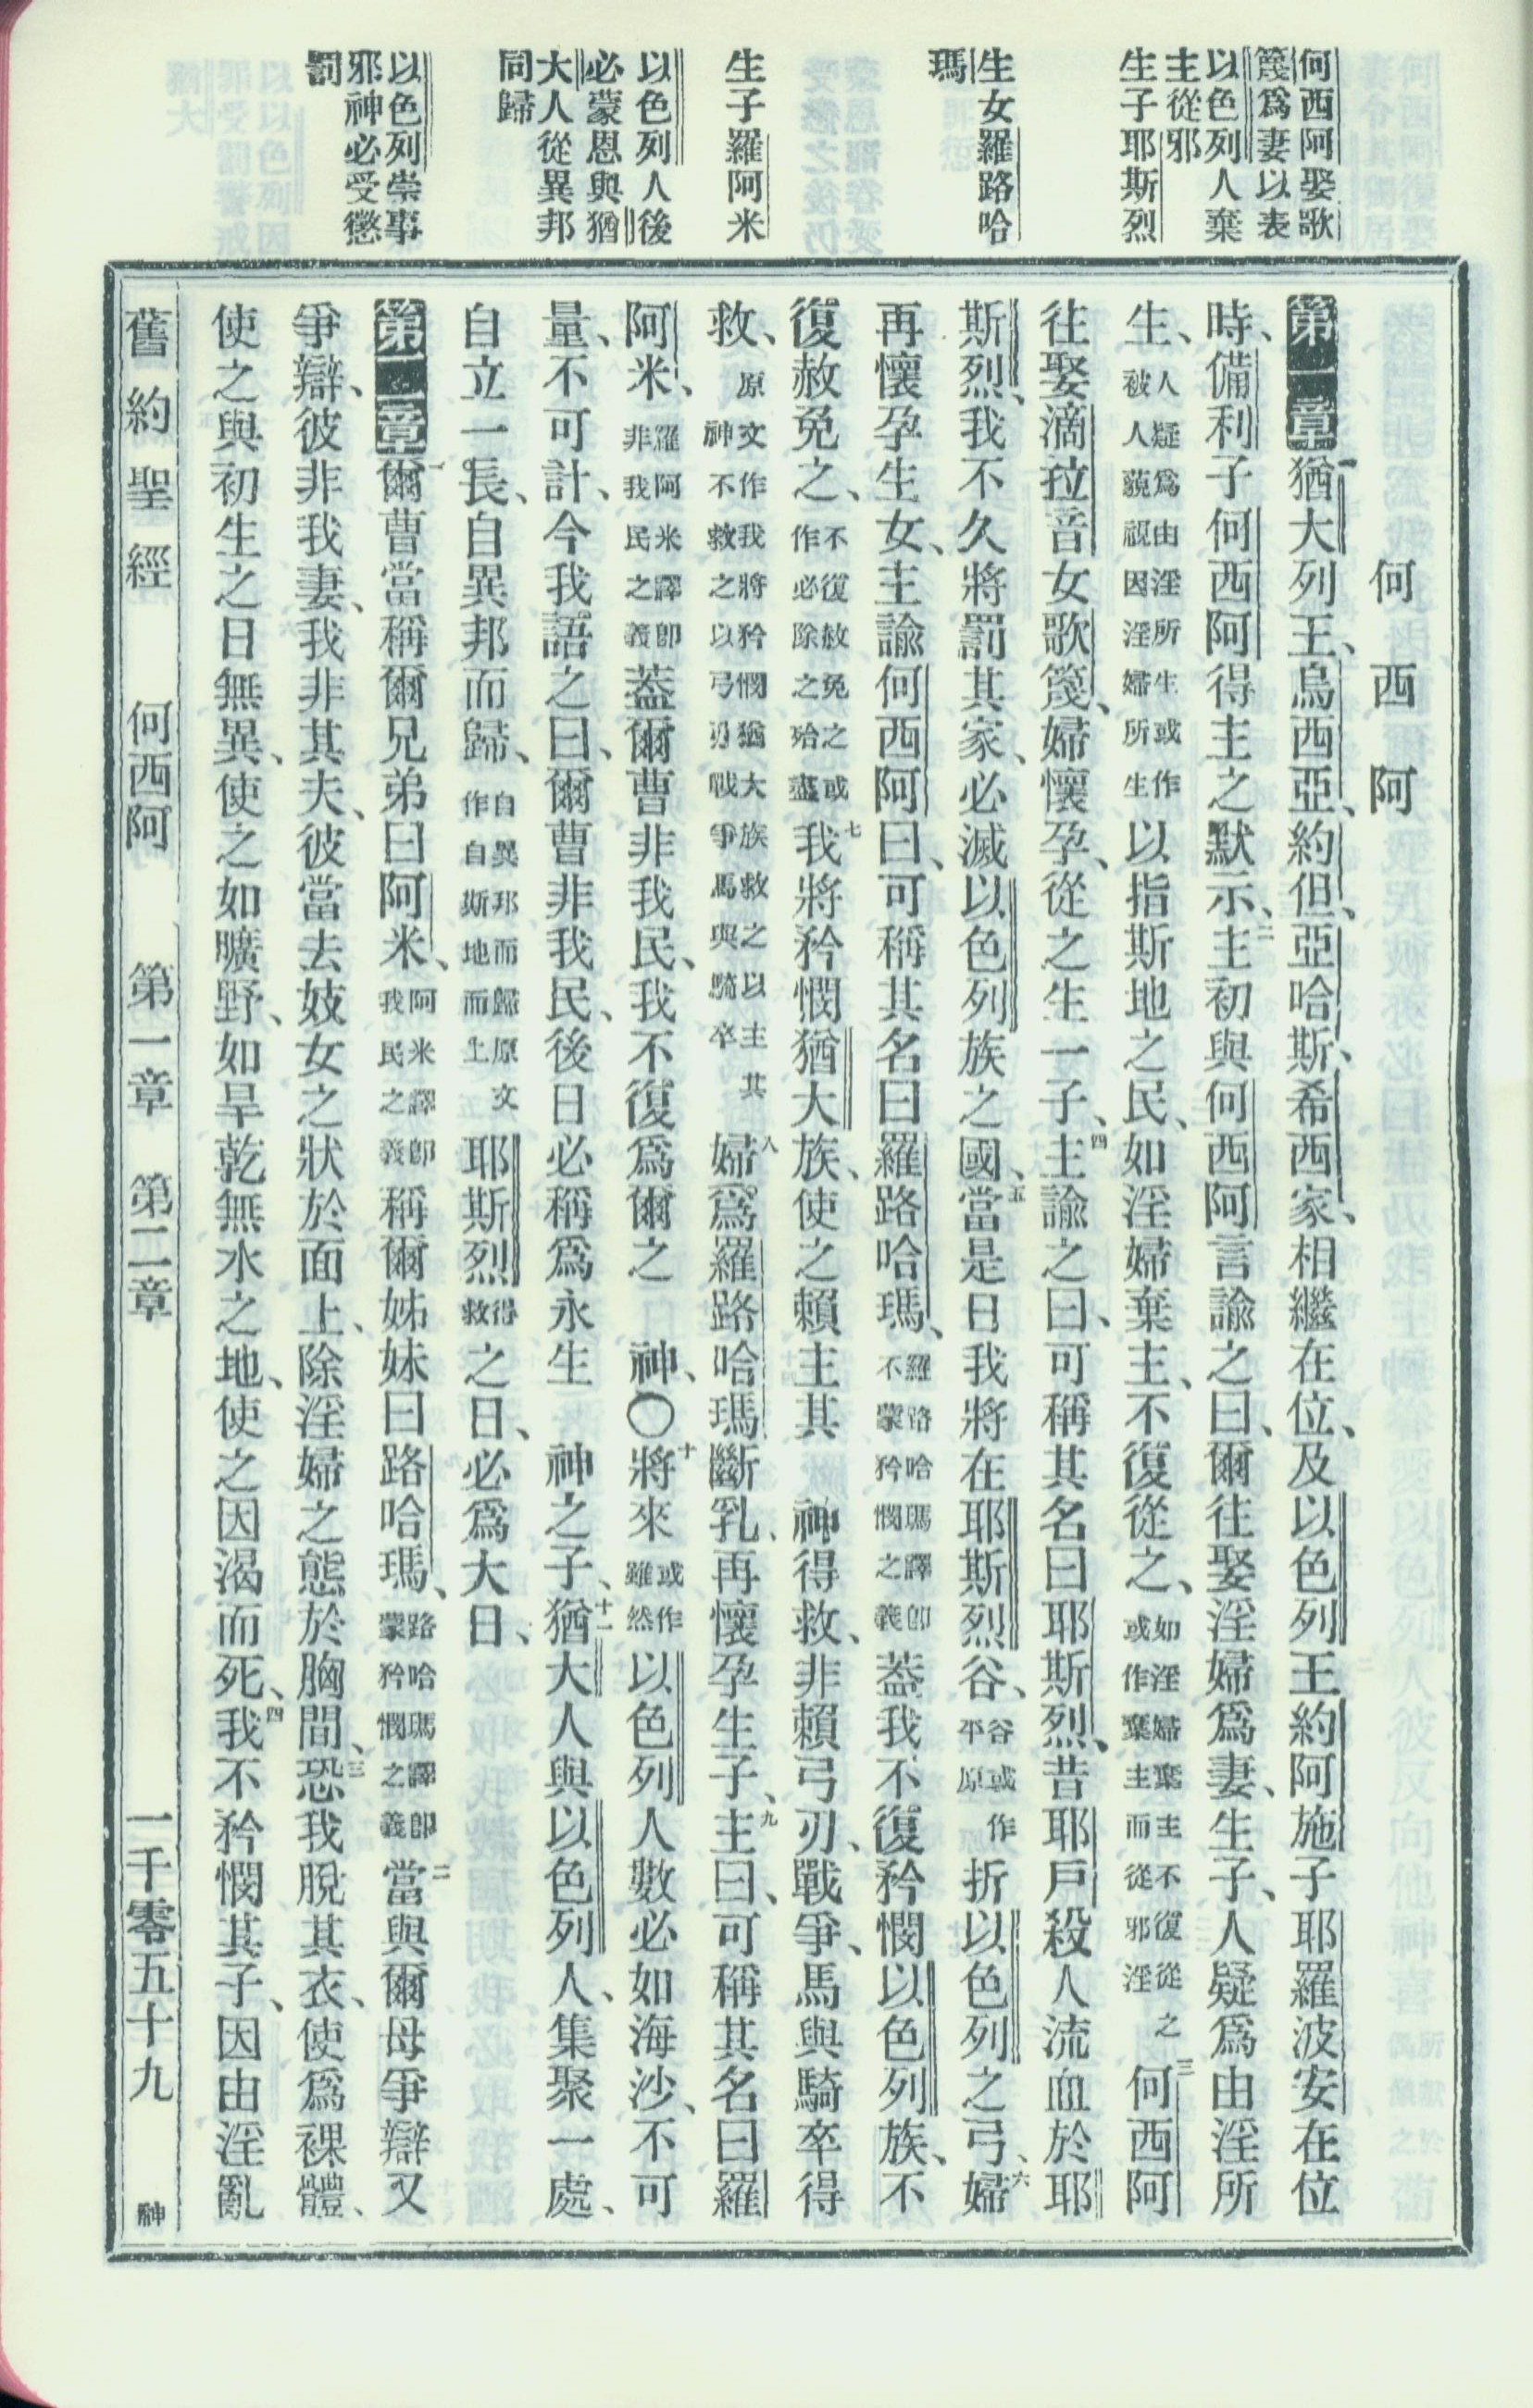 何西阿娶歌
篾爲妻以表
以色列人棄
主從邪
生子耶斯烈
生女羅路哈
瑪
生子羅阿米
以色列人後
必蒙恩與猶
大人從異邦
同歸
以色列崇事
邪神必受懲
罰
何西阿
第一章一猶大列王、烏西亞、約但、亞哈斯、希西家、相繼在位、及以色列王約阿施子耶羅波安在位
時、備利子何西阿得主之默示、二主初與何西阿言諭之曰、爾往娶淫婦爲妻、生子、人疑爲由淫所
生、人疑爲由淫所生或作被人藐視因淫婦所生以指斯地之民、如淫婦棄主、不復從之、如淫婦棄主不復從之或作棄主而從邪淫三何西阿
往娶滴拉音女歌篾、婦懷孕、從之生一子、四主諭之曰、可稱其名曰耶斯烈、昔耶戶殺人流血於耶
斯烈、我不久將罰其家、必滅以色列族之國、五當是日我將在耶斯烈谷、谷或作平原折以色列之弓、六婦
再懷孕生女、主諭何西阿曰、可稱其名曰羅路哈瑪、羅路哈瑪譯即不蒙矜憫之義蓋我不復矜憫以色列族、不
復赦免之、不復赦免之或作必除之殆盡七我將矜憫猶大族、使之賴主其神得救、非賴弓刃、戰爭、馬與騎卒得
救、原文作我將矜憫猶大族救之以主其神不救之以弓刃戰爭馬與騎卒八婦爲羅路哈瑪斷乳、再懷孕生子、九主曰、可稱其名曰羅
阿米、羅阿米譯即非我民之義蓋爾曹非我民、我不復爲爾之神、〇十將來或作雖然以色列人數必如海沙、不可
量、不可計、今我語之曰、爾曹非我民、後日必稱爲永生神之子、十一猶大人與以色列人、集聚一處、
自立一長、自異邦而歸、自異邦而歸原文作自斯地而上耶斯烈得救之日、必爲大日、
第二章一爾曹當稱爾兄弟曰阿米、阿米譯即我民之義稱爾姊妹曰路哈瑪、路哈瑪譯即蒙矜憫之義二當與爾母爭辯又
爭辯、彼非我妻、我非其夫、彼當去妓女之狀於面上、除淫婦之態於胸間、三恐我脫其衣、使爲裸體、
使之與初生之日無異、使之如曠野、如旱乾無水之地、使之因渴而死、四我不矜憫其子、因由淫亂
舊約聖經 何西阿 第一章 第二章 一千零五十九 神